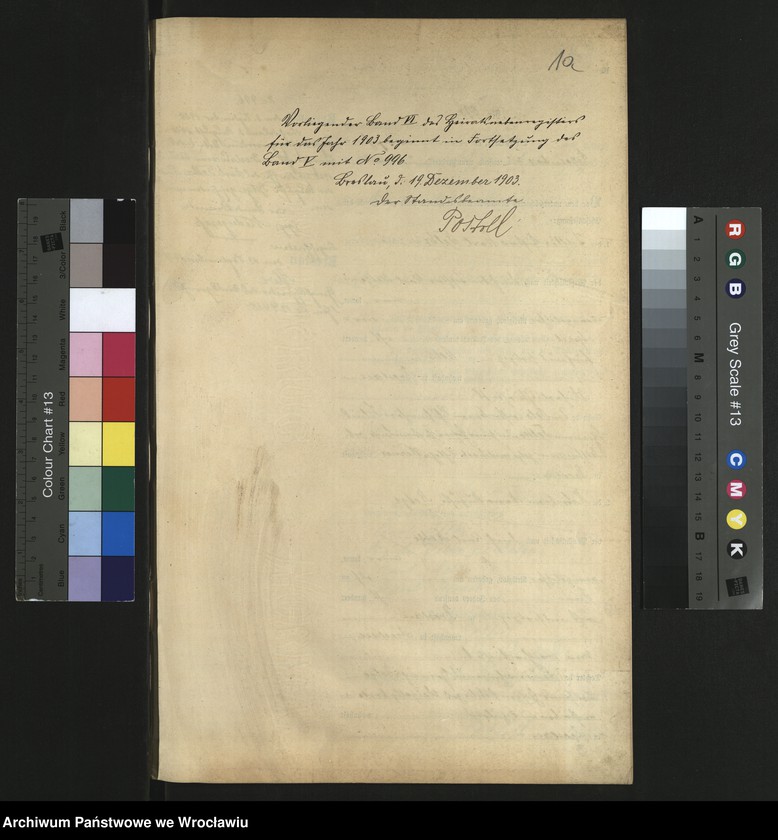 1a
Vorliegender Band VI des Heiratsnebenregisters
für das Jahr 1903 beginnt in Fortsetzung des
Band V mit No 996.
Breslau, d. 19. Dezember 1903.
Der Standesbeamte
Colour Chart #13
Blue
Cyan
Green
Yellow
Red
Magenta
White
3/Color
Black
Grey Scale #13
R
G
B
C
M
Y
K
A
1
2
3
4
5
6
M
8
9
10
11
12
13
14
15
B
17
18
19
Archiwum Państwowe we Wrocławiu